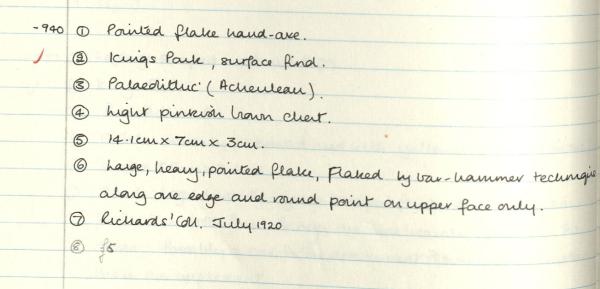 -940 ① Pointed flake hand-axe.
② Kings Park, surface find.
③ Palaeolithic (Acheulean).
④ Light pinkish brown chert.
⑤ 14.1cm x 7cm x 3cm.
⑥ Large, heavy, pointed flake, Flaked by bar-hammer technique
along one edge and round point on upper face only.
⑦ Richards' Coll. July 1920
⑧ £5